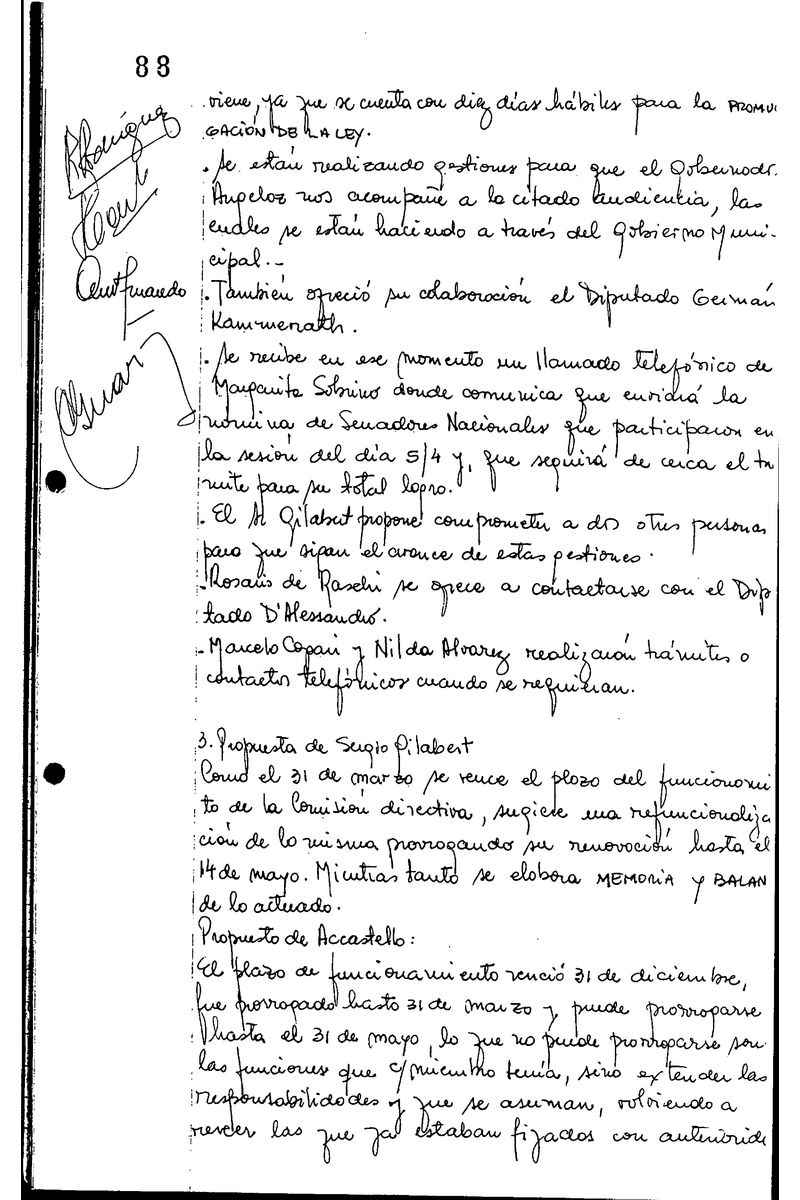 88
viene, ya que se cuenta con diez días hábiles para la PROMUL
GACIÓN DE LA LEY.
. Se están realizando gestiones para que el Gobernador
Angeloz nos acompañe a la citada audiencia, las
cuales se están haciendo a través del Gobierno Muni-
cipal.-
. También ofreció su colaboración el Diputado Germán
Kammerath.
. Se recibe en ese momento un llamado telefónico de
Margarita Sobrino donde comunica que enviará la
nómina de Senadores Nacionales que participaron en
la sesión del día 5/4 y, que seguirá de cerca el trá
mite para su total logro.
. El Sr Gilabert propone comprometer a dos otres personas
para que sigan el avance de estas gestiones.
. Rosario de Raschi se ofrece a contactarse con el Dip
tado D'Alessandro.
. Marcelo Copari y Nilda Alvarez realizarán trámites o
contactos telefónicos cuando se requieran.
3. Propuesta de Sergio Gilabert
Como el 31 de marzo se vence el plazo del funcionami
to de la Comisión directiva, sugiere una refuncionaliza
ción de la misma prorrogando su renovación hasta el
14 de mayo. Mientras tanto se elabora MEMORIA y BALAN
de lo actuado.
Propuesta de Accastello:
El plazo de funcionamiento venció 31 de diciembre,
fue prorrogado hasta 31 de marzo y puede prorrogarse
hasta el 31 de mayo, lo que no puede prorrogarse son
las funciones que c/miembro tenía, sino extender las
responsabilidades y que se asuman, volviendo a
rever las que ya estaban fijadas con anteriorida